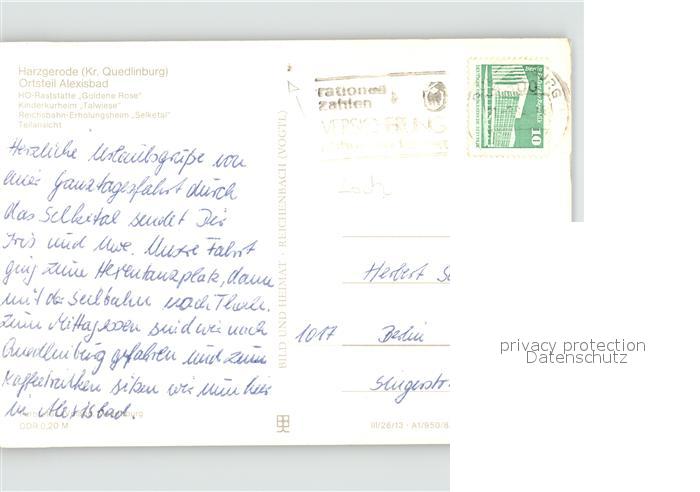 Harzgerode (Kr. Quedlinburg)
Ortsteil Alexisbad
HO-Raststätte „Goldene Rose"
Kinderkurheim „Talwiese"
Reichsbahn-Erholungsheim „Selketal"
Teilansicht
Herzliche Urlaubsgrüße von
einer Ganztagesfahrt durch
das Selketal sendet Dir
Iris und Uwe. Unsere Fahrt
ging zum Hexentanzplatz, dann
mit der Seilbahn nach Thale.
Zum Mittagessen sind wir nach
Quedlinburg gefahren und zum
Kaffeetrinken sitzen wir nun hier
in Alexisbad.
DDR 0,20 M
BILD UND HEIMAT · REICHENBACH (VOGTL)
rationell
zahlen
VERSICHERUNG
10
Herbert
1017 Berlin
Singerstr
III/26/13 · A1/950/8
privacy protection
Datenschutz